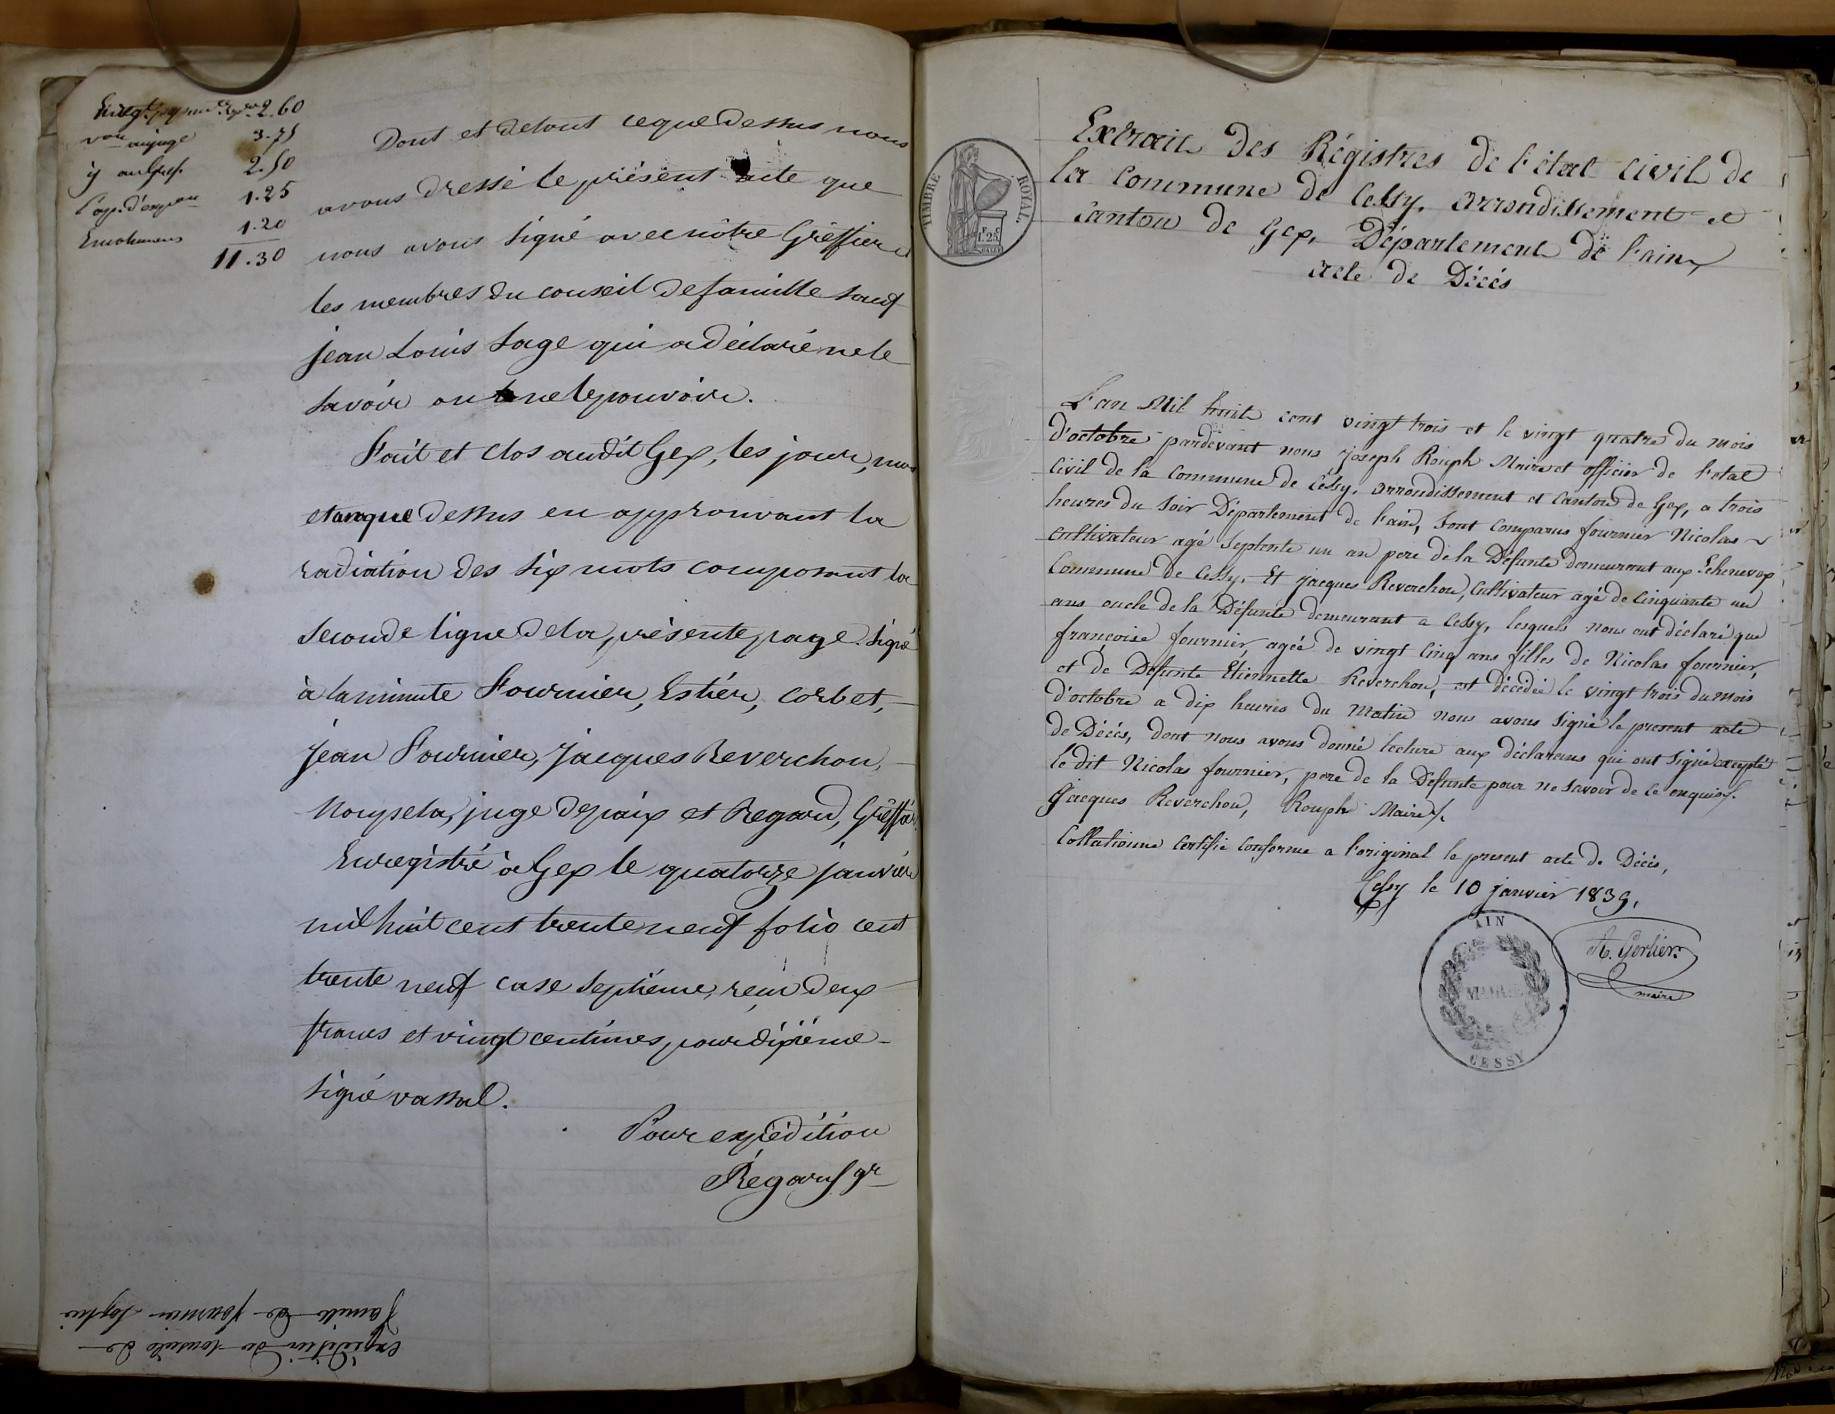 Enreg.t 2.60
von au juge 3.75
if au Gref. 2.50
Pap. d'expon 1.25
Emolumens 1.20
11.30
Dont et detout ceque dessus nous
avons dressé le présent acte que
nous avons signé avec nôtre Greffier et
les membres du conseil de famille sauf
jean Louis Sage qui a déclaré ne le
savoir ou ne le pouvoir.
Fait et clos audit Gex, les jour, mois
et an que dessus en approuvant la
radiation des six mots composant la
seconde ligne de la présente page. Signé
à la minute Fournier, Estier, Corbet,
jean Fournier, jacques Reverchon,
juge de paix et Regard, Greffier.
Enregistré à Gex le quatorze janvier
mil huit cent trente neuf folio cent
trente neuf case septième, reçu deux
francs et vingt centimes pour dixième
signé vassal.
Pour expédition
Régard gr
expédition de conseil de
famille de fournier Sophie
TIMBRE ROYAL
1.25
Extrait des Régistres de l'état civil de
la Commune de Cessy, arrondissement et
canton de Gex, Département de l'ain
acte de Décés
L'an Mil huit cent vingt trois et le vingt quatre du mois
d'octobre pardevant nous joseph Rouph Maire et officier de l'etat
Civil de la Commune de Cessy, arrondissement et Canton de Gex, a trois
heures du soir Département de l'ain, sont comparus fournier Nicolas
cultivateur agé septente un an pere de la Défunte demeurant aux Echenevex
Commune de Cessy. Et jacques Reverchon, Cultivateur agé de Cinquante un
ans oncle de la Défunte demeurant a Cessy, lesquels nous ont déclaré que
françoise fournier, agée de vingt Cinq ans filles de Nicolas fournier,
et de Defunte Etiennette Reverchon, est décédée le vingt trois du mois
d'octobre a dix heures du Matin nous avons signé le present acte
de Décés, dont nous avons donné lecture aux déclarans qui ont signé excepté
le dit Nicolas fournier, pere de la Defunte pour ne savoir de ce enquis/.
Jacques Reverchon, Rouph Maire/.
Collationné Certifié Conforme a l'original le present acte de Décés,
Cessy le 10 janvier 1839,
AIN
MAIRIE
CESSY
maire